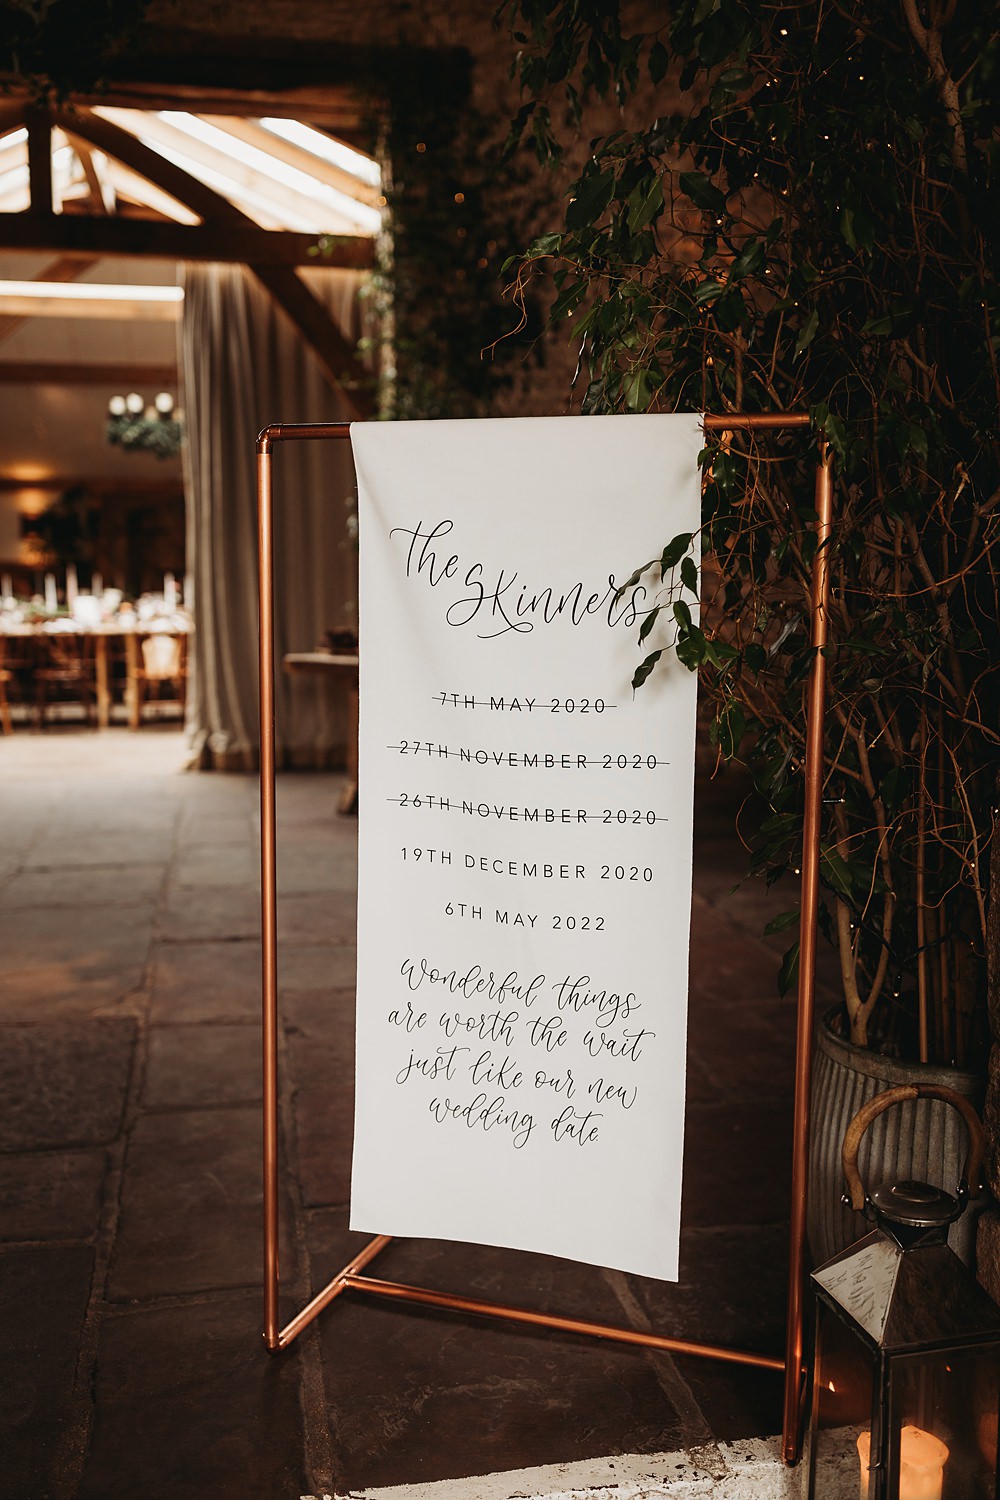 the
Skinners
7TH MAY 2020
27TH NOVEMBER 2020
26TH NOVEMBER 2020
19TH DECEMBER 2020
6TH MAY 2022
wonderful things
are worth the wait
just like our new
wedding date.